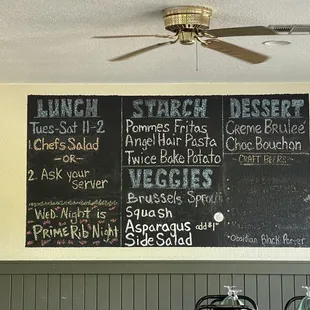 LUNCH
Tues-Sat 11-2
1. Chefs Salad
-OR-
2. Ask your
server
"Wed" Night" is
PRIME Rib Night
STARCH
Pommes Fritas
Angel Hair Pasta
Twice Bake Potato
VEGGIES
Brussels Sprouts
Squash
Asparagus add $1
Side Salad
DESSERT
Creme Brulee
Choc Bouchon
CRAFT BEERS